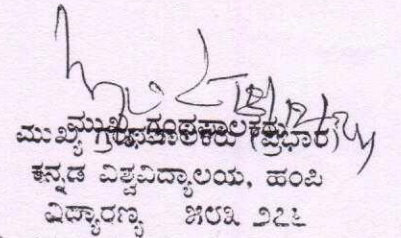 ಮುಖ್ಯ ಗ್ರಂಥಪಾಲಕರು (ಪ್ರಭಾರ)
ಕನ್ನಡ ವಿಶ್ವವಿದ್ಯಾಲಯ, ಹಂಪಿ
ವಿದ್ಯಾರಣ್ಯ ೫೮೩ ೨೭೬